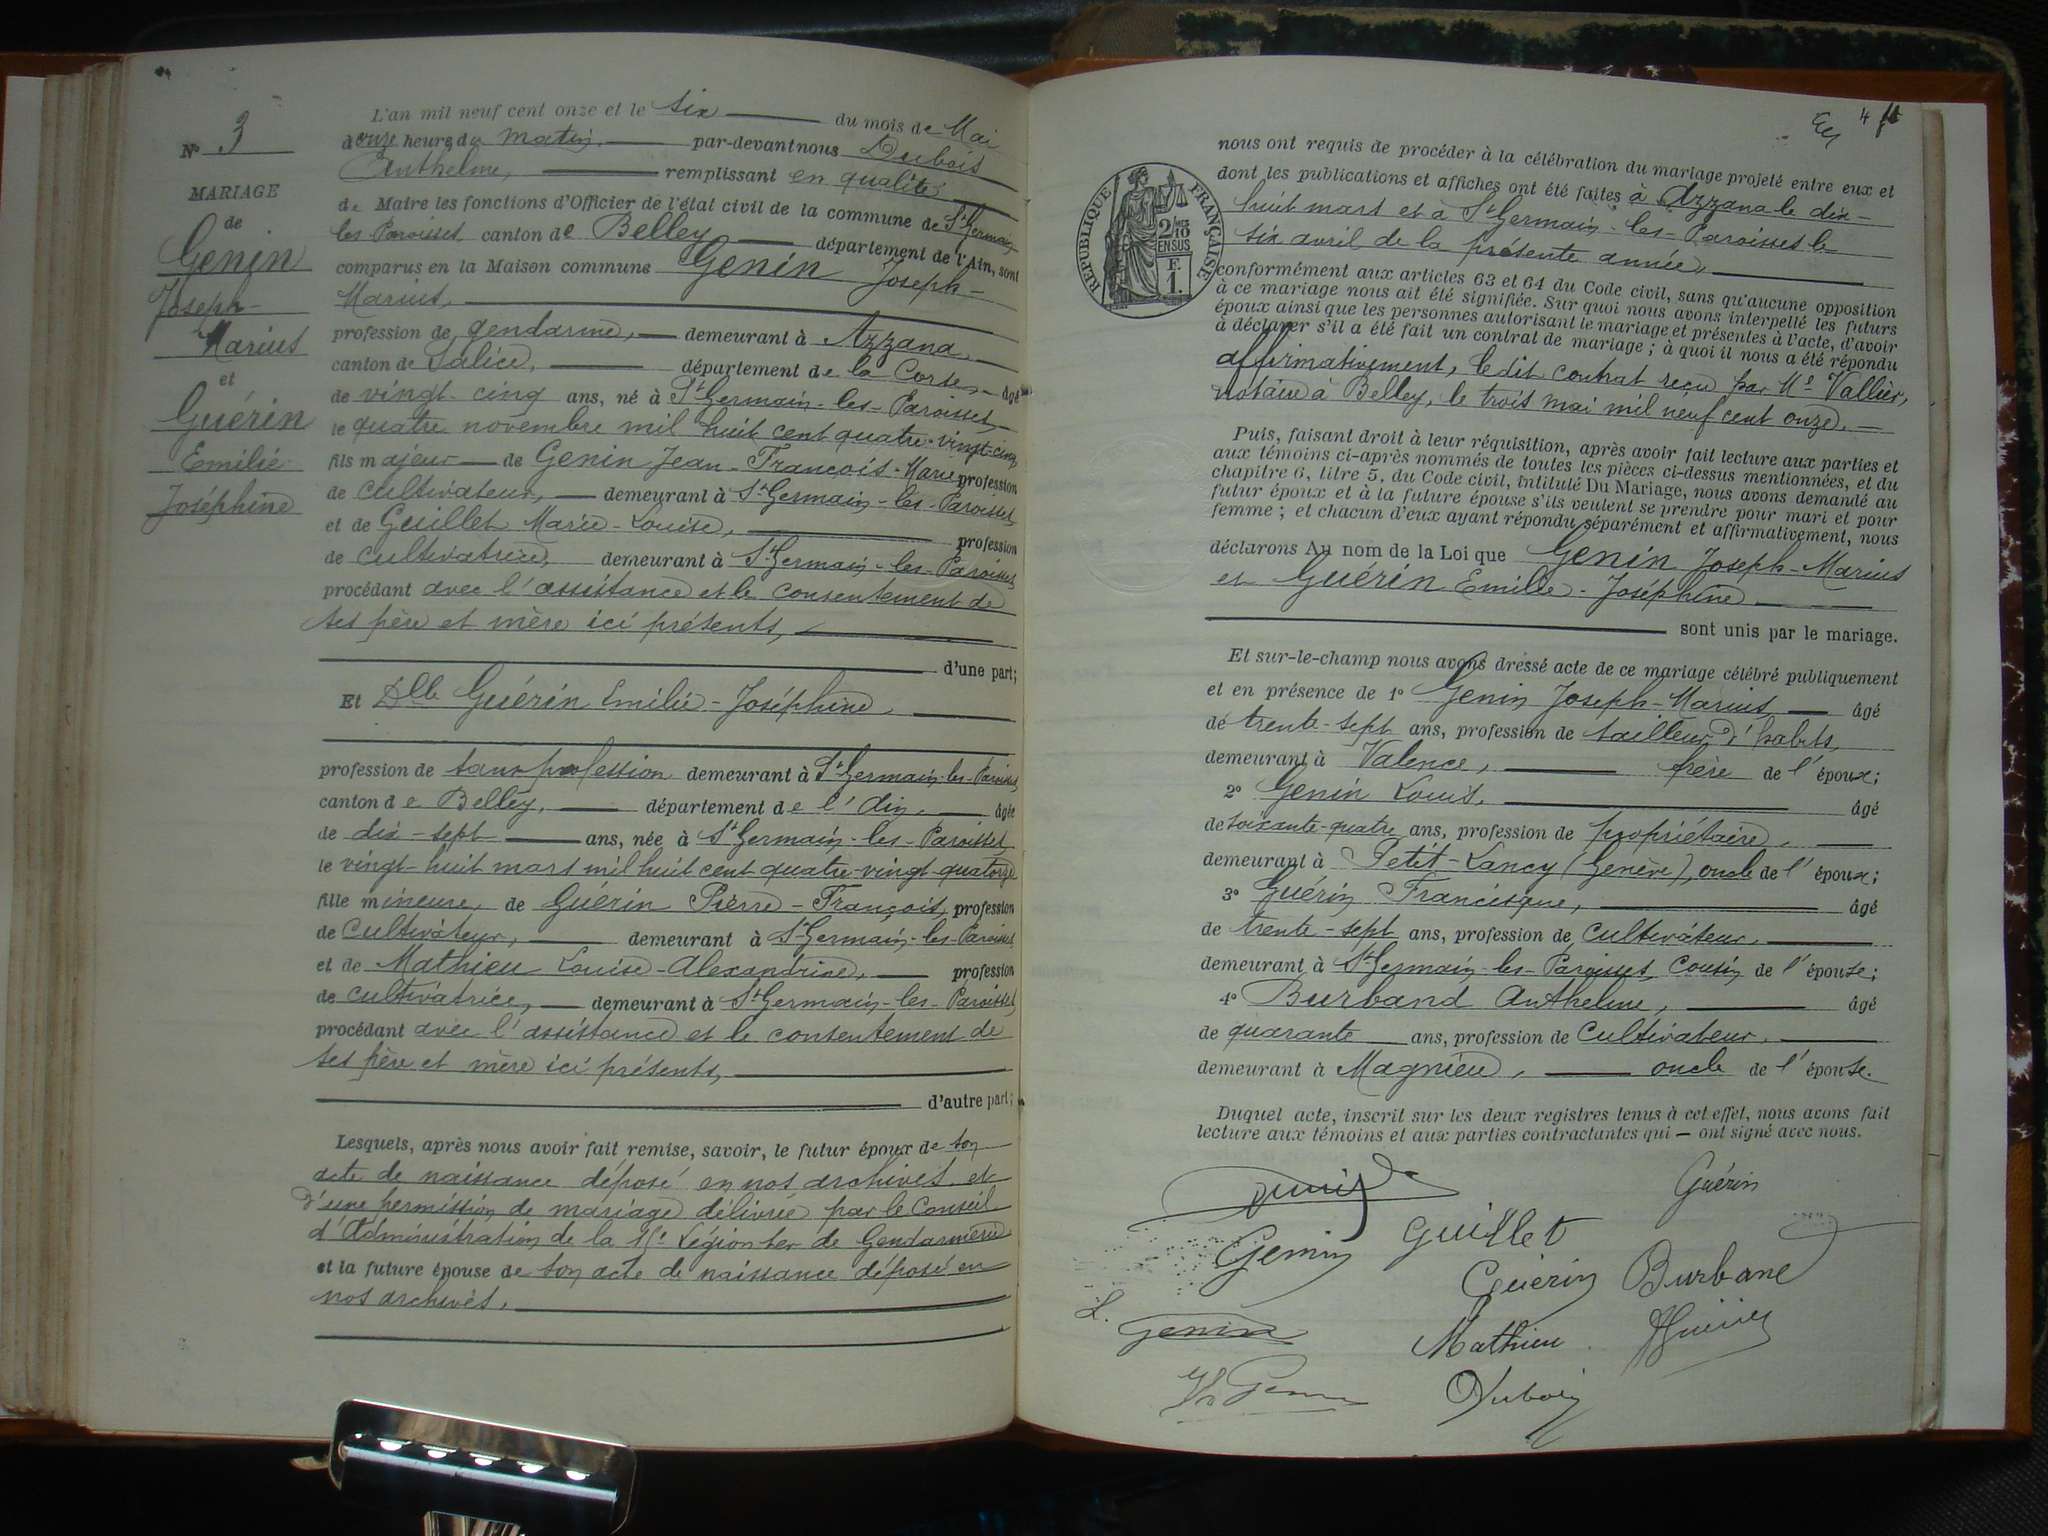 Nº 3
MARIAGE
de
Genin
Joseph-
Marius
et
Guérin
Emilie
Joséphine
L'an mil neuf cent onze et le six du mois de Mai
à onze heures du matin, par-devant nous Dubois
Anthelme, remplissant en qualité
de Maire les fonctions d'Officier de l'état civil de la commune de St Germain-
les-Paroisses, canton de Belley département de l'Ain, sont
comparus en la Maison commune Genin Joseph-
Marius,
profession de gendarme, demeurant à Azzana,
canton de Salice, département de la Corse, âgé
de vingt-cinq ans, né à St Germain-les-Paroisses
le quatre novembre mil huit cent quatre-vingt-cinq
fils majeur de Genin Jean-François-Marie profession
de cultivateur, demeurant à St Germain-les-Paroisses
et de Guillet Marie-Louise, profession
de cultivatrice, demeurant à St Germain-les-Paroisses,
procédant avec l'assistance et le consentement de
ses père et mère ici présents,
d'une part;
Et Dlle Guérin Emilie-Joséphine,
profession de sans profession demeurant à St Germain-les-Paroisses,
canton de Belley, département de l'Ain, âgée
de dix-sept ans, née à St Germain-les-Paroisses,
le vingt-huit mars mil huit cent quatre-vingt-quatorze
fille mineure de Guérin Pierre-François, profession
de cultivateur, demeurant à St Germain-les-Paroisses,
et de Mathieu Louise-Alexandrine, profession
de cultivatrice, demeurant à St Germain-les-Paroisses,
procédant avec l'assistance et le consentement de
ses père et mère ici présents,
d'autre part;
Lesquels, après nous avoir fait remise, savoir, le futur époux de son
acte de naissance déposé en nos archives et
d'une permission de mariage délivrée par le Conseil
d'Administration de la 15e Légion ter de Gendarmerie
et la future épouse de son acte de naissance déposé en
nos archives.
4
RÉPUBLIQUE FRANÇAISE
2/10
EN SUS
F.
1.
nous ont requis de procéder à la célébration du mariage projeté entre eux et
dont les publications et affiches ont été faites à Azzana le dix-
huit mars et à St Germain-les-Paroisses le
six avril de la présente année,
conformément aux articles 63 et 64 du Code civil, sans qu'aucune opposition
à ce mariage nous ait été signifiée. Sur quoi nous avons interpellé les futurs
époux ainsi que les personnes autorisant le mariage et présentes à l'acte, d'avoir
à déclarer s'il a été fait un contrat de mariage; à quoi il nous a été répondu
affirmativement, le dit contrat reçu par Me Vallier,
notaire à Belley, le trois mai mil neuf cent onze.
Puis, faisant droit à leur réquisition, après avoir fait lecture aux parties et
aux témoins ci-après nommés de toutes les pièces ci-dessus mentionnées, et du
chapitre 6, titre 5, du Code civil, intitulé Du Mariage, nous avons demandé au
futur époux et à la future épouse s'ils veulent se prendre pour mari et pour
femme; et chacun d'eux ayant répondu séparément et affirmativement, nous
déclarons Au nom de la Loi que Genin Joseph-Marius
et Guérin Emilie-Joséphine
sont unis par le mariage.
Et sur-le-champ nous avons dressé acte de ce mariage célébré publiquement
et en présence de 1º Genin Joseph-Marius âgé
de trente-sept ans, profession de tailleur d'habits,
demeurant à Valence, frère de l'époux;
2º Genin Louis, âgé
de soixante-quatre ans, profession de propriétaire,
demeurant à Petit-Lancy (Genève), oncle de l'époux;
3º Guérin Francisque, âgé
de trente-sept ans, profession de cultivateur,
demeurant à St Germain-les-Paroisses, cousin de l'épouse;
4º Burband Anthelme, âgé
de quarante ans, profession de cultivateur,
demeurant à Magnieu, oncle de l'épouse.
Duquel acte, inscrit sur les deux registres tenus à cet effet, nous avons fait
lecture aux témoins et aux parties contractantes qui — ont signé avec nous.
Guérin
Genin Guillet
Guérin Burband
L. Genin
Mathieu
Genin
Dubois